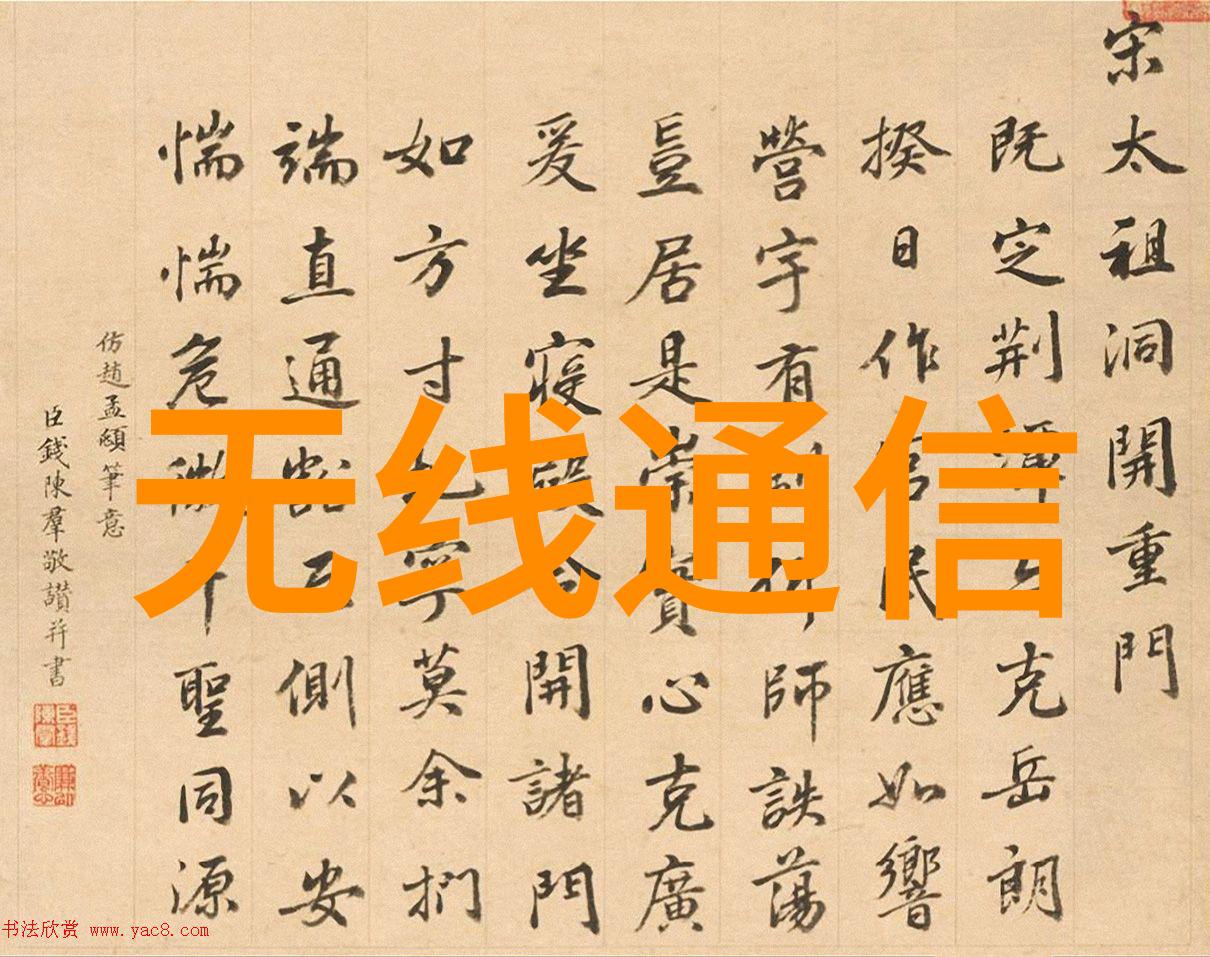 宋太祖洞開重門
既定荆潭克岳朗
揆日作宫民應如響
營宇有師詄蕩
豈居是崇實心克廣
爰坐寝殿令開諸門
如方寸寧莫余捫
端直通豁側以安
惴惴危微千聖同源
仿趙孟頫筆意
臣錢陳羣敬讚并書
无线通信
书法欣赏 www.yac8.com